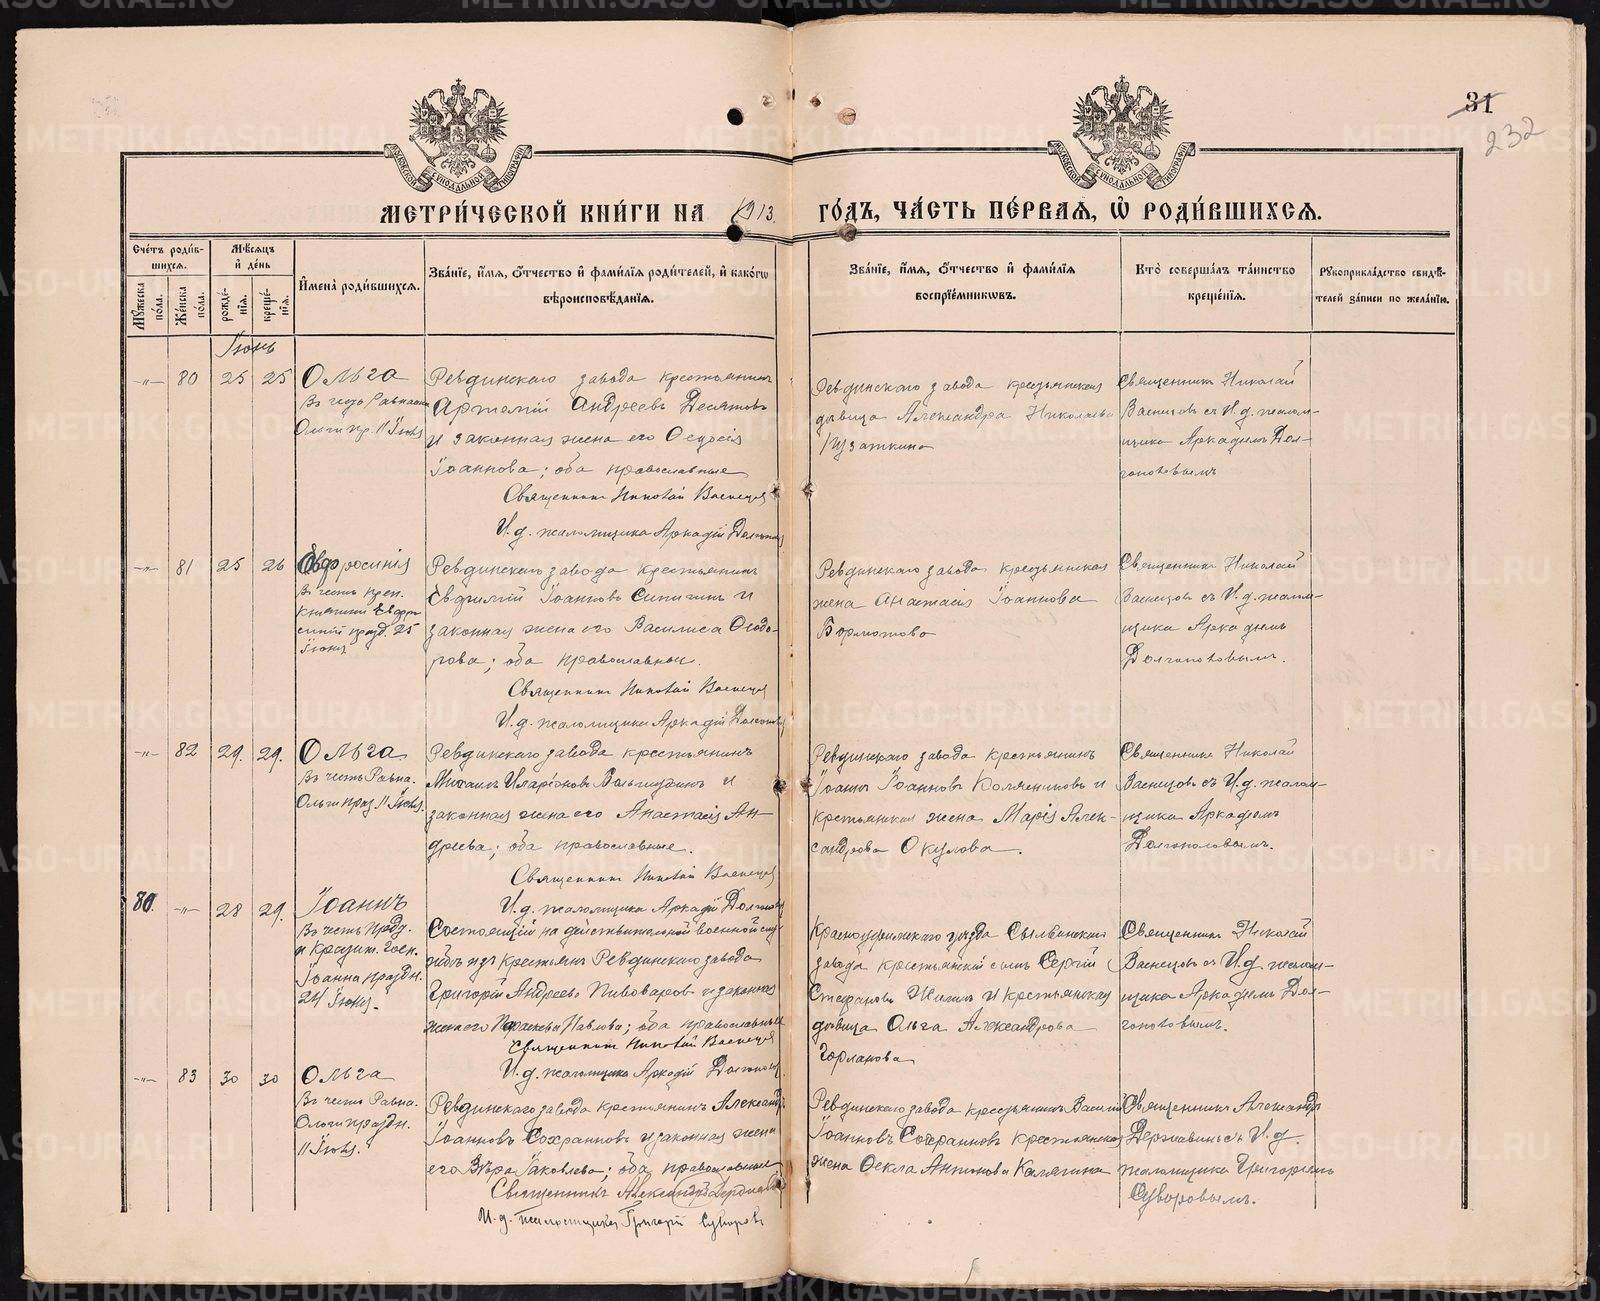 31
232
МОСКОВСКОЙ СѴНОДАЛЬНОЙ ТИПОГРАФІИ
МОСКОВСКОЙ СѴНОДАЛЬНОЙ ТИПОГРАФІИ
МЕТРИ́ЧЕСКОЙ КНИ́ГИ НА 1913 ГО́ДЪ, ЧА́СТЬ ПЕ́РВАЯ, Ѡ РОДИ́ВШИХСЯ.
Сче́тъ роди́в-
шихся.
Му́жеска по́ла.
Же́нска по́ла.
Мѣ́сяцъ
и де́нь
рожде́-
нія.
креще́-
нія.
И́мена̀ роди́вшихся.
Зва́ніе, и́мя, ѻ́тчество и фами́лія роди́телей, и како́гѡ
вѣроисповѣ́данія.
Зва́ніе, и́мя, ѻ́тчество и фами́лія
воспріе́мникѡвъ.
Кто̀ соверша́лъ та́инство
креще́нія.
Рукоприкла́дство свидѣ́-
телей за́писи по жела́нію.
Іюнь
-"- 80 25 25
Ольга
Ольги пр. 11 Іюл.
Ревдинскаго завода крестьянинъ
Артемій Андреевъ Десятовъ
и законная жена его
Іоаннова; оба православные
Священникъ Николай Васнецов
И.д. псаломщика Аркадій
Ревдинскаго завода крестьянская
дѣвица Александра Николаева
Священникъ Николай
Васнецовъ съ И.д. псалом-
щика Аркадіемъ Дол-
гополовымъ
-"- 81 25 26
Евфросинія
Въ честь преп.
княгини Евфро-
синіи празд. 25
Іюня
Ревдинскаго завода крестьянинъ
Евфимій Іоанновъ и
законная жена его Василиса Ѳеодо-
рова; оба православные.
Священникъ Николай Васнецов
И.д. псаломщика Аркадій
Ревдинскаго завода крестьянская
жена Анастасія Іоаннова
Бормотова
Священникъ Николай
Васнецовъ съ И.д. псалом-
щика Аркадіемъ
Долгополовымъ.
-"- 82 29. 29.
Ольга
Въ честь Равна.
Ольги праз. 11 Іюл.
Ревдинскаго завода крестьянинъ
Михаилъ Иларіоновъ и
законная жена его Анастасія Ан-
дреева; оба православные.
Священникъ Николай Васнецов
И.д. псаломщика Аркадій
Ревдинскаго завода крестьянинъ
Іоаннъ Іоанновъ и
крестьянская жена Марія Алек-
сандрова Окулова.
Священникъ Николай
Васнецовъ съ И.д. псалом-
щика Аркадіемъ
Долгополовымъ.
80. -"- 28 29.
Іоаннъ
Въ честь Предт.
и Крестит. Госп.
Іоанна праздн.
24 Іюня.
Состоящій на дѣйствительной военной служ-
бѣ изъ крестьянъ Ревдинскаго завода
Григорій Андреевъ Пивоваровъ и законная
жена его Параскева Павлова; оба православные
Священникъ Николай Васнецов
И.д. псаломщика Аркадій
Красноуфимскаго уѣзда Сылвинскаго
завода крестьянскій сынъ Сергій
Стефановъ и крестьянская
дѣвица Ольга Александрова
Горланова
Священникъ Николай
Васнецовъ съ И.д. псалом-
щика Аркадіемъ Дол-
гополовымъ.
-"- 83 30 30
Ольга
Въ честь Равна.
Ольги праздн.
11 Іюл.
Ревдинскаго завода крестьянинъ Александръ
Іоанновъ Сохранновъ и законная жена
его Вѣра Іаковлева; оба православные
Священникъ Александръ Державинъ
И.д. псаломщика Григорій Суворовъ
Ревдинскаго завода крестьянинъ Василій
Іоанновъ Сохранновъ крестьянская
жена Ѳекла Антонова Калягина
Священникъ Александръ
Державинъ съ И.д.
псаломщика Григоріемъ
Суворовымъ.
METRIKI.GASO-URAL.RU